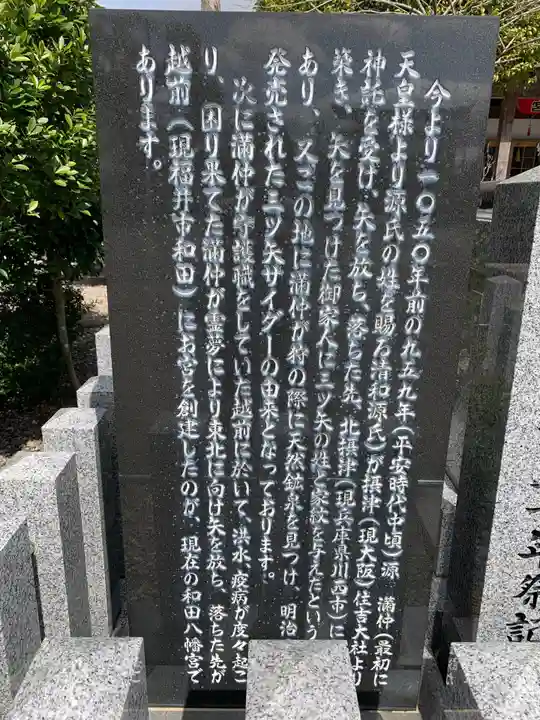 今より一〇五〇年前の九五九年(平安時代中頃)源 満仲(最初に
天皇様より源氏の姓を賜る清和源氏)が摂津(現大阪)住吉大社より
神託を受け、矢を放ち、落ちた先、北摂津(現兵庫県川西市)に
築き、矢を見つけた御家人に三ツ矢の姓と家紋を与えたという
あり、又この地に満仲が狩の際に天然鉱泉を見つけ、明治
発売された三ツ矢サイダーの由来となっております。
次に満仲が守護職をしていた越前に於いて、洪水、疫病が度々起こ
り、困り果てた満仲が霊夢により東北に向け矢を放ち、落ちた先が
越前(現福井市和田)にお宮を創建したのが、現在の和田八幡宮で
あります。
年祭記